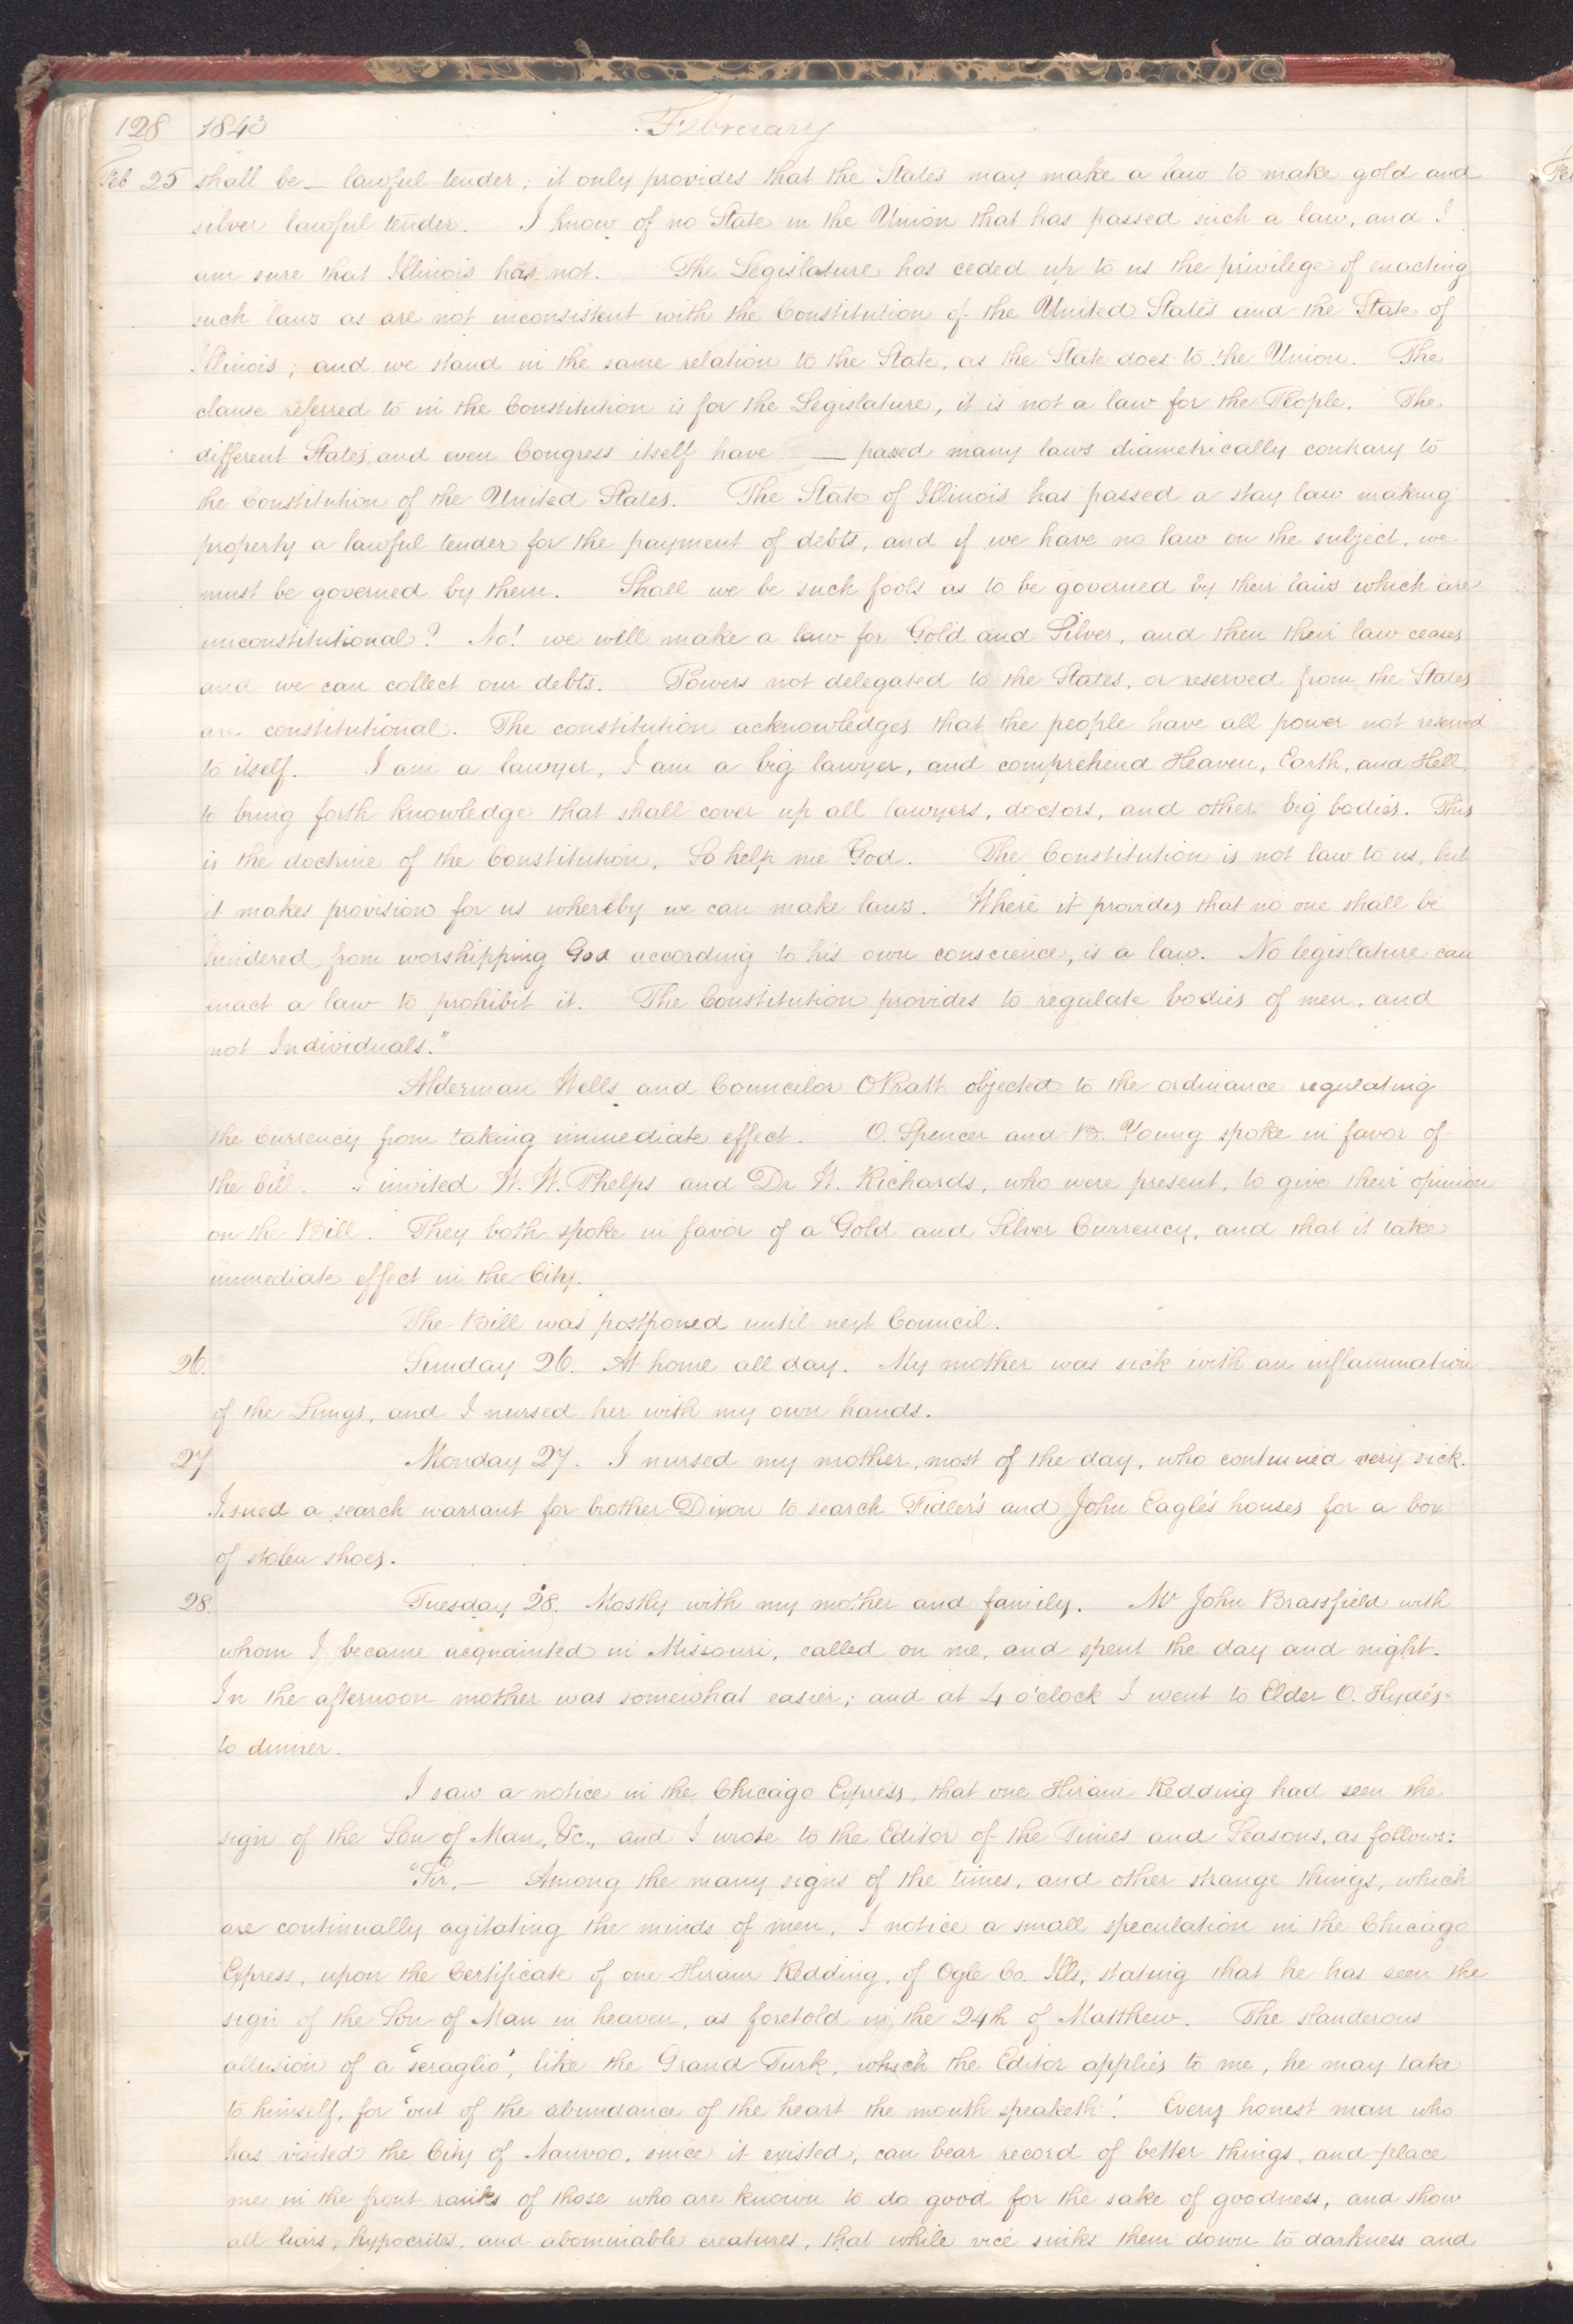 128 1843 February
Feb 25 shall be — lawful tender; it only provides that the States may make a law to make gold and
silver lawful tender. I know of no State in the Union that has passed such a law, and I
am sure that Illinois has not. The Legislature has ceded up to us the privilege of enacting
such laws as are not inconsistent with the Constitution of the United States and the State of
Illinois; and we stand in the same relation to the State, as the State does to the Union. The
clause referred to in the Constitution is for the Legislature, it is not a law for the People. The
different States, and even Congress itself have — passed many laws diametrically contrary to
the Constitution of the United States. The State of Illinois has passed a stay law making
property a lawful tender for the payment of debts, and if we have no law on the subject, we
must be governed by them. Shall we be such fools as to be governed by their laws which are
unconstitutional? No! we will make a law for Gold and Silver, and then their law ceases
and we can collect our debts. Powers not delegated to the States, or reserved from the States
are constitutional. The constitution acknowledges that the people have all power not reserved
to itself. I am a lawyer, I am a big lawyer, and comprehend Heaven, Earth, and Hell,
to bring forth knowledge that shall cover up all lawyers, doctors, and other big bodies. This
is the doctrine of the Constitution, So help me God. The Constitution is not law to us, but
it makes provision for us whereby we can make laws. Where it provides that no one shall be
hindered from worshipping God according to his own conscience, is a law. No legislature can
enact a law to prohibit it. The Constitution provides to regulate bodies of men, and
not Individuals."
Alderman Wells and Councilor O Pratt objected to the ordinance regulating
the Currency from taking immediate effect. O. Spencer and B. Young spoke in favor of
the bill. I invited W. W. Phelps and Dr W. Richards, who were present, to give their opinion
on the Bill. They both spoke in favor of a Gold and Silver Currency, and that it take
immediate effect in the City.
The Bill was postponed until next Council.
26. Sunday 26. At home all day. My mother was sick with an inflammation
of the Lungs, and I nursed her with my own hands.
27 Monday 27. I nursed my mother, most of the day, who continued very sick.
Issued a search warrant for brother Dixon to search Fidler's and John Eagle's houses for a box
of stolen shoes.
28. Tuesday 28. Mostly with my mother and family. Mr John Brassfield with
whom I became acquainted in Missouri, called on me, and spent the day and night.
In the afternoon mother was somewhat easier; and at 4 o'clock I went to Elder O. Hyde's
to dinner.
I saw a notice in the Chicago Express, that one Hiram Redding had seen the
sign of the Son of Man, &c., and I wrote to the Editor of the Times and Seasons, as follows:
"Sir,— Among the many signs of the times, and other strange things, which
are continually agitating the minds of men, I notice a small speculation in the Chicago
Express, upon the Certificate of one Hiram Redding, of Ogle Co. Ills, stating that he has seen the
sign of the Son of Man in heaven, as foretold in the 24th of Matthew. The slanderous
allusion of a "seraglio", like the Grand Turk, which the Editor applies to me, he may take
to himself, for "out of the abundance of the heart the mouth speaketh". Every honest man who
has visited the City of Nauvoo, since it existed, can bear record of better things, and place
me in the front ranks of those who are known to do good for the sake of goodness, and show
all liars, hypocrites, and abominable creatures, that while vice sinks them down to darkness and